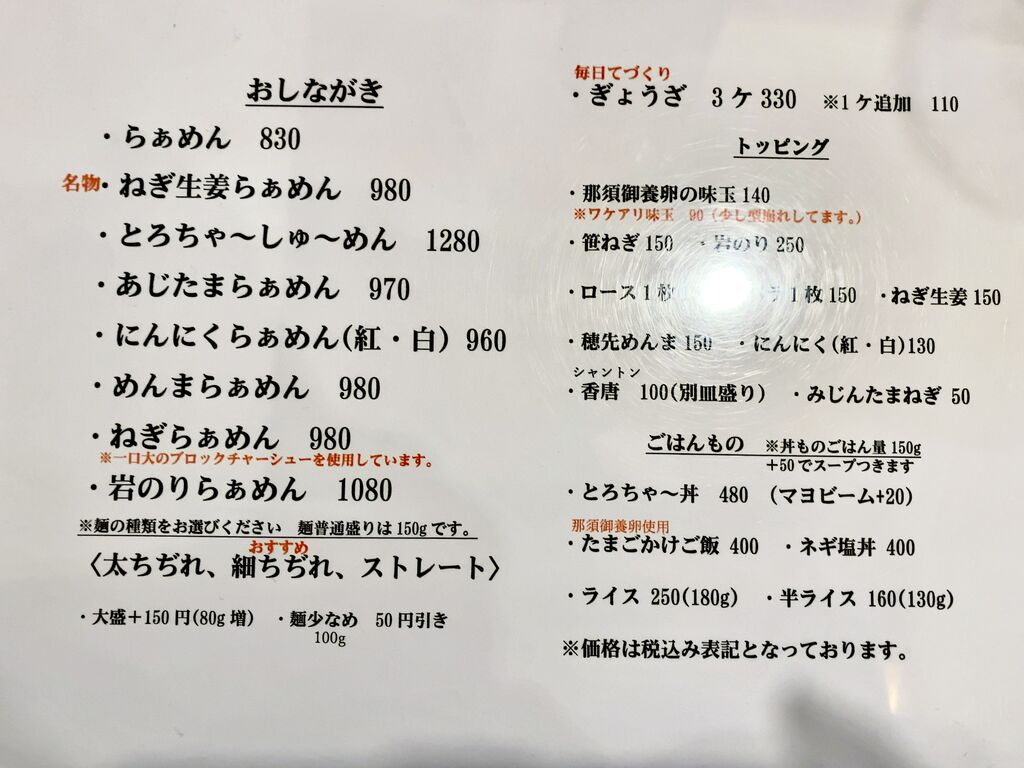 おしながき
・らぁめん 830
名物・ねぎ生姜らぁめん 980
・とろちゃ～しゅ～めん 1280
・あじたまらぁめん 970
・にんにくらぁめん(紅・白) 960
・めんまらぁめん 980
・ねぎらぁめん 980
※一口大のブロックチャーシューを使用しています。
・岩のりらぁめん 1080
※麺の種類をお選びください 麺普通盛りは150gです。
おすすめ
〈太ちぢれ、細ちぢれ、ストレート〉
・大盛＋150円(80g増) ・麺少なめ 50円引き
100g
毎日てづくり
・ぎょうざ 3ケ330 ※1ケ追加 110
トッピング
・那須御養卵の味玉140
※ワケアリ味玉 90（少し型崩れしてます。）
・笹ねぎ150 ・岩のり250
・ロース1枚 1枚150 ・ねぎ生姜150
・穂先めんま150 ・にんにく(紅・白)130
シャントン
・香唐 100(別皿盛り) ・みじんたまねぎ 50
ごはんもの ※丼ものごはん量150g
＋50でスープつきます
・とろちゃ～丼 480 (マヨビーム+20)
那須御養卵使用
・たまごかけご飯 400 ・ネギ塩丼 400
・ライス 250(180g) ・半ライス 160(130g)
※価格は税込み表記となっております。